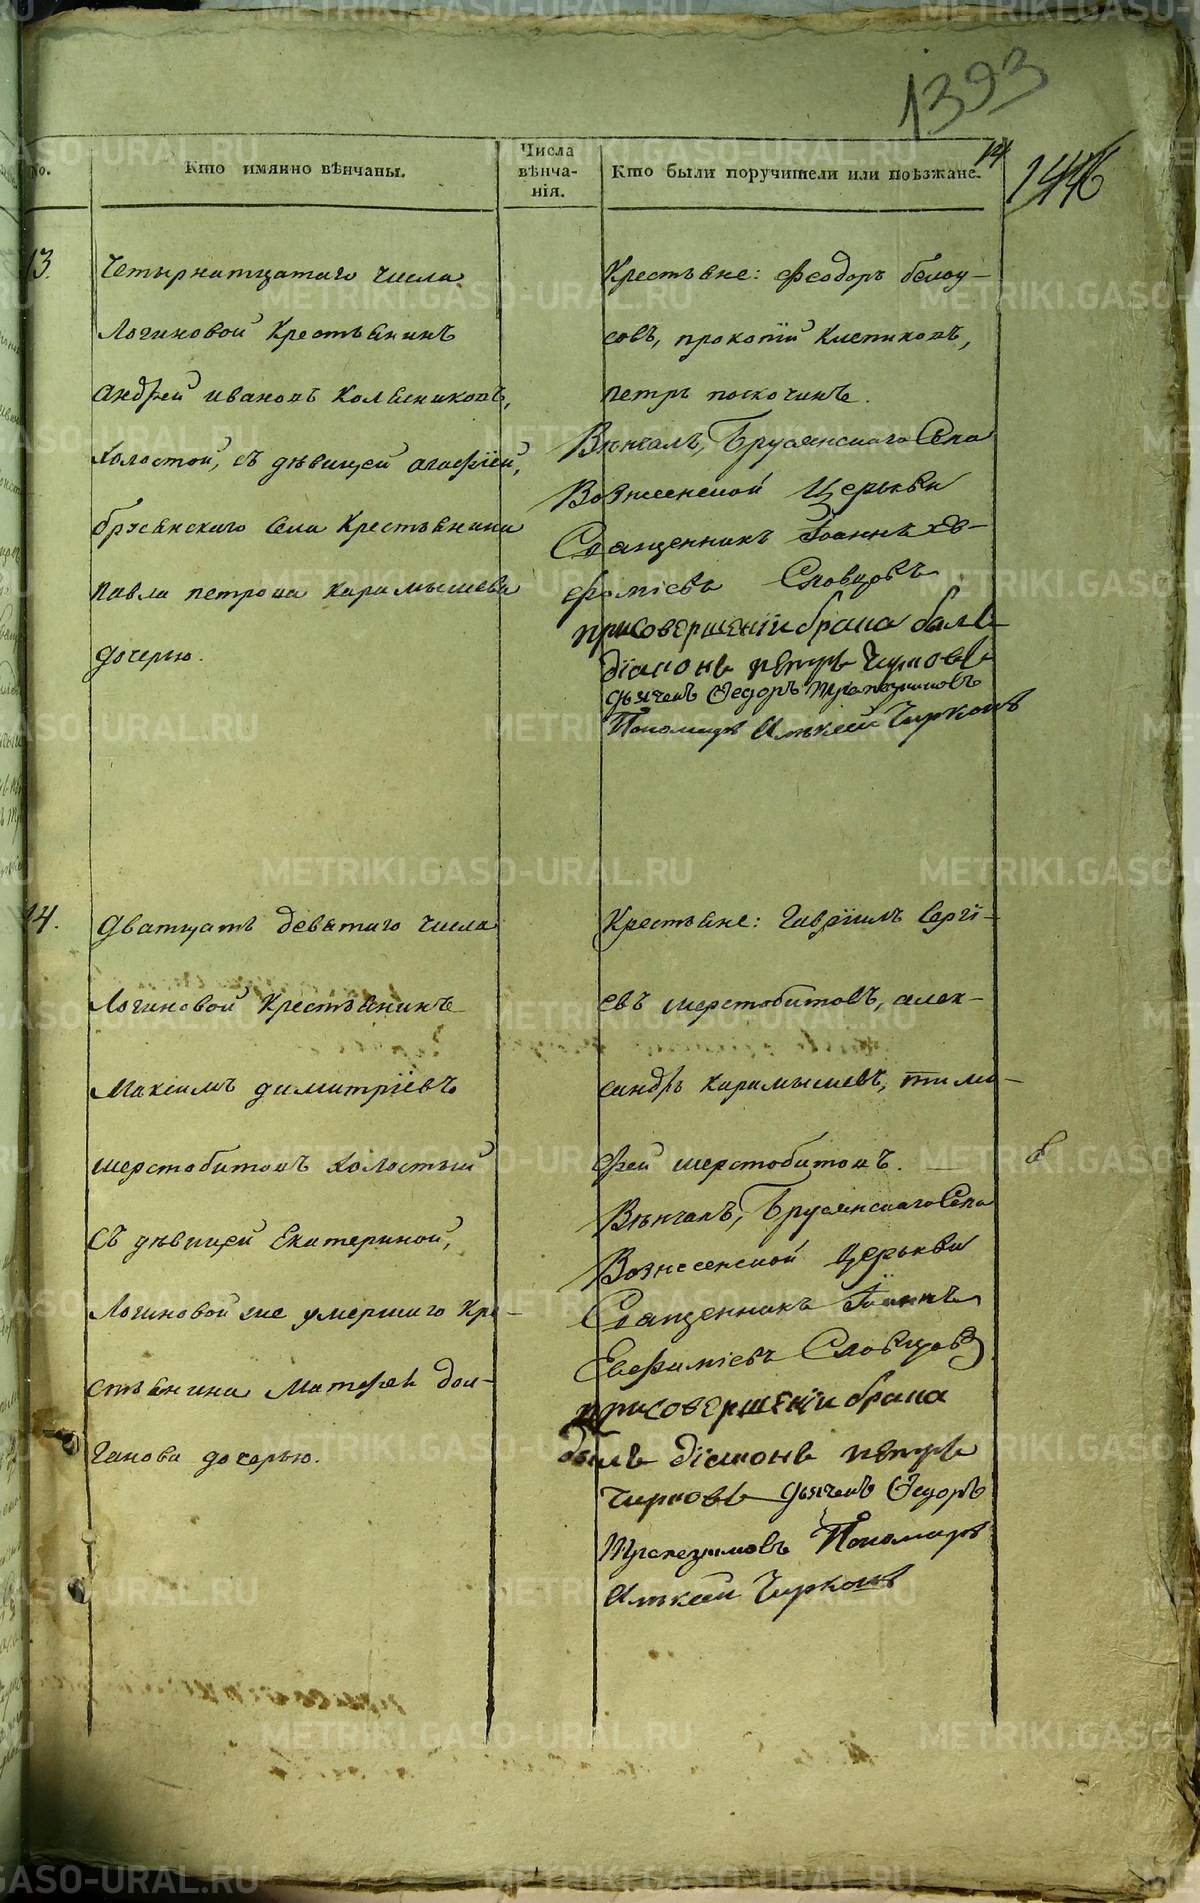 1393
14
1446
No.
Кто имянно вѣнчаны.
Числа вѣнча-нія.
Кто были поручители или поѣзжане.
13.
Четырнатцатаго числа
Логиновой Крестьянинъ
андрей ивановъ Колѣсниковъ,
холостой, съ дѣвицей агафіей,
брусянскаго села Крестьянина
павла петрова Карамышева
дочерью.
Крестьяне: феодоръ белоу-
совъ, прокопій Кистиковъ,
петръ поскочинъ.
Вѣнчалъ, Брусянскаго Села
Вознесенской Церькви
Священникъ Іоаннъ Ев-
фиміевъ Словцовъ
присовершеніи брака былъ
діаконъ петръ Чирковъ
дьячекъ Ѳедоръ Трапезниковъ
Пономарь Алѣксей Чирковъ
14.
Дватцать девятаго числа
Логиновой Крестьянинъ
Максимъ димитріевъ
шерстобитовъ холостый
съ дѣвицей Екатериной,
Логиновой же умершаго Кре-
стьянина Матфея Дол-
ганова дочерью.
Крестьяне: Гавріилъ Сергі-
евъ шерстобитовъ, алек-
сандръ Карамышевъ, тимо-
фей шерстобитовъ.
Вѣнчалъ, Брусянскаго Села
Вознесенской Церькви
Священникъ Іоаннъ
Евфиміевъ Словцовъ
присовершеніи брака
былъ діаконъ петръ
Чирковъ дьячекъ Ѳедоръ
Трапезниковъ Пономарь
Алѣксей Чирковъ
METRIKI.GASO-URAL.RU